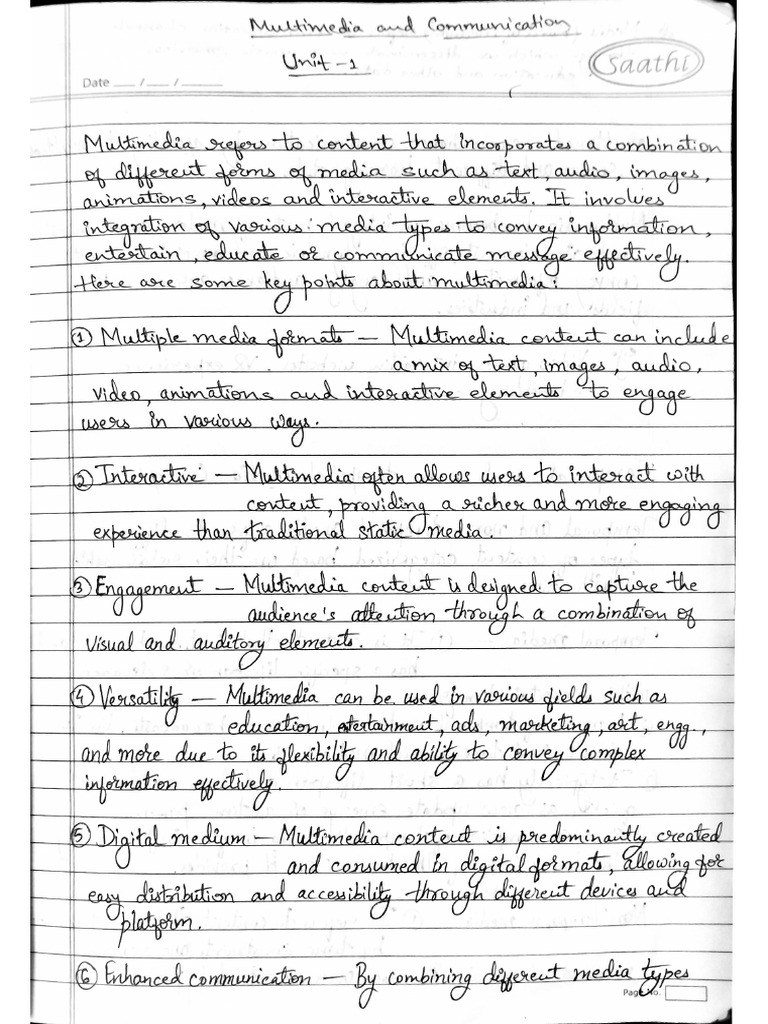 Multimedia and Communication
Unit-1
Saathi
Date ___ / ___ / ______
Multimedia refers to content that incorporates a combination
of different forms of media such as text, audio, images,
animations, videos and interactive elements. It involves
integration of various media types to convey information,
entertain, educate or communicate message effectively.
Here are some key points about multimedia:
① Multiple media formats — Multimedia content can include
a mix of text, images, audio,
video, animations and interactive elements to engage
users in various ways.
② Interactive — Multimedia often allows users to interact with
content, providing a richer and more engaging
experience than traditional static media
③ Engagement — Multimedia content is designed to capture the
audience's attention through a combination of
visual and auditory elements.
④ Versatility — Multimedia can be used in various fields such as
education, entertainment, ads, marketing, art, engg.,
and more due to its flexibility and ability to convey complex
information effectively.
⑤ Digital medium — Multimedia content is predominantly created
and consumed in digital formats, allowing for
easy distribution and accessibility through different devices and
platform.
⑥ Enhanced communication — By combining different media types
Page No.